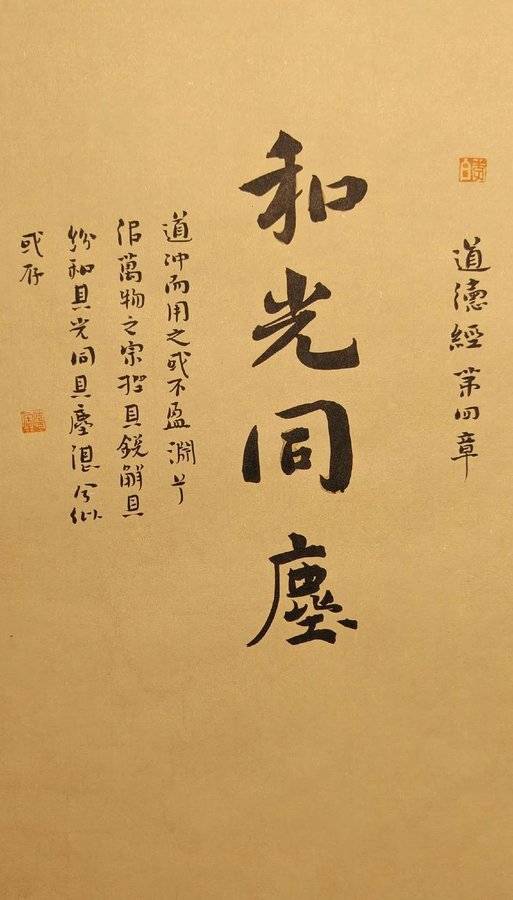 道德經第四章
和光同塵
道冲而用之或不盈淵兮
佀萬物之宗挫其銳解其
紛和其光同其塵湛兮似
或存